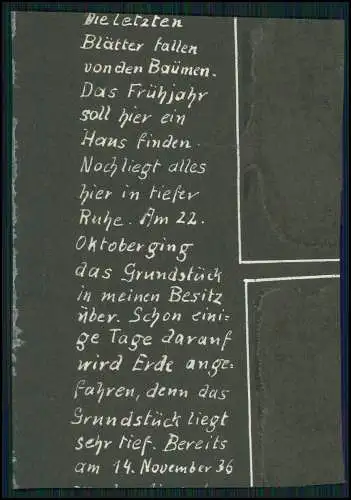 Die letzten
Blätter fallen
von den Baümen.
Das Frühjahr
soll hier ein
Haus finden.
Noch liegt alles
hier in tiefer
Ruhe. Am 22.
Oktober ging
das Grundstück
in meinen Besitz
über. Schon eini=
ge Tage darauf
wird Erde ange=
fahren, denn das
Grundstück liegt
sehr tief. Bereits
am 14. November 36